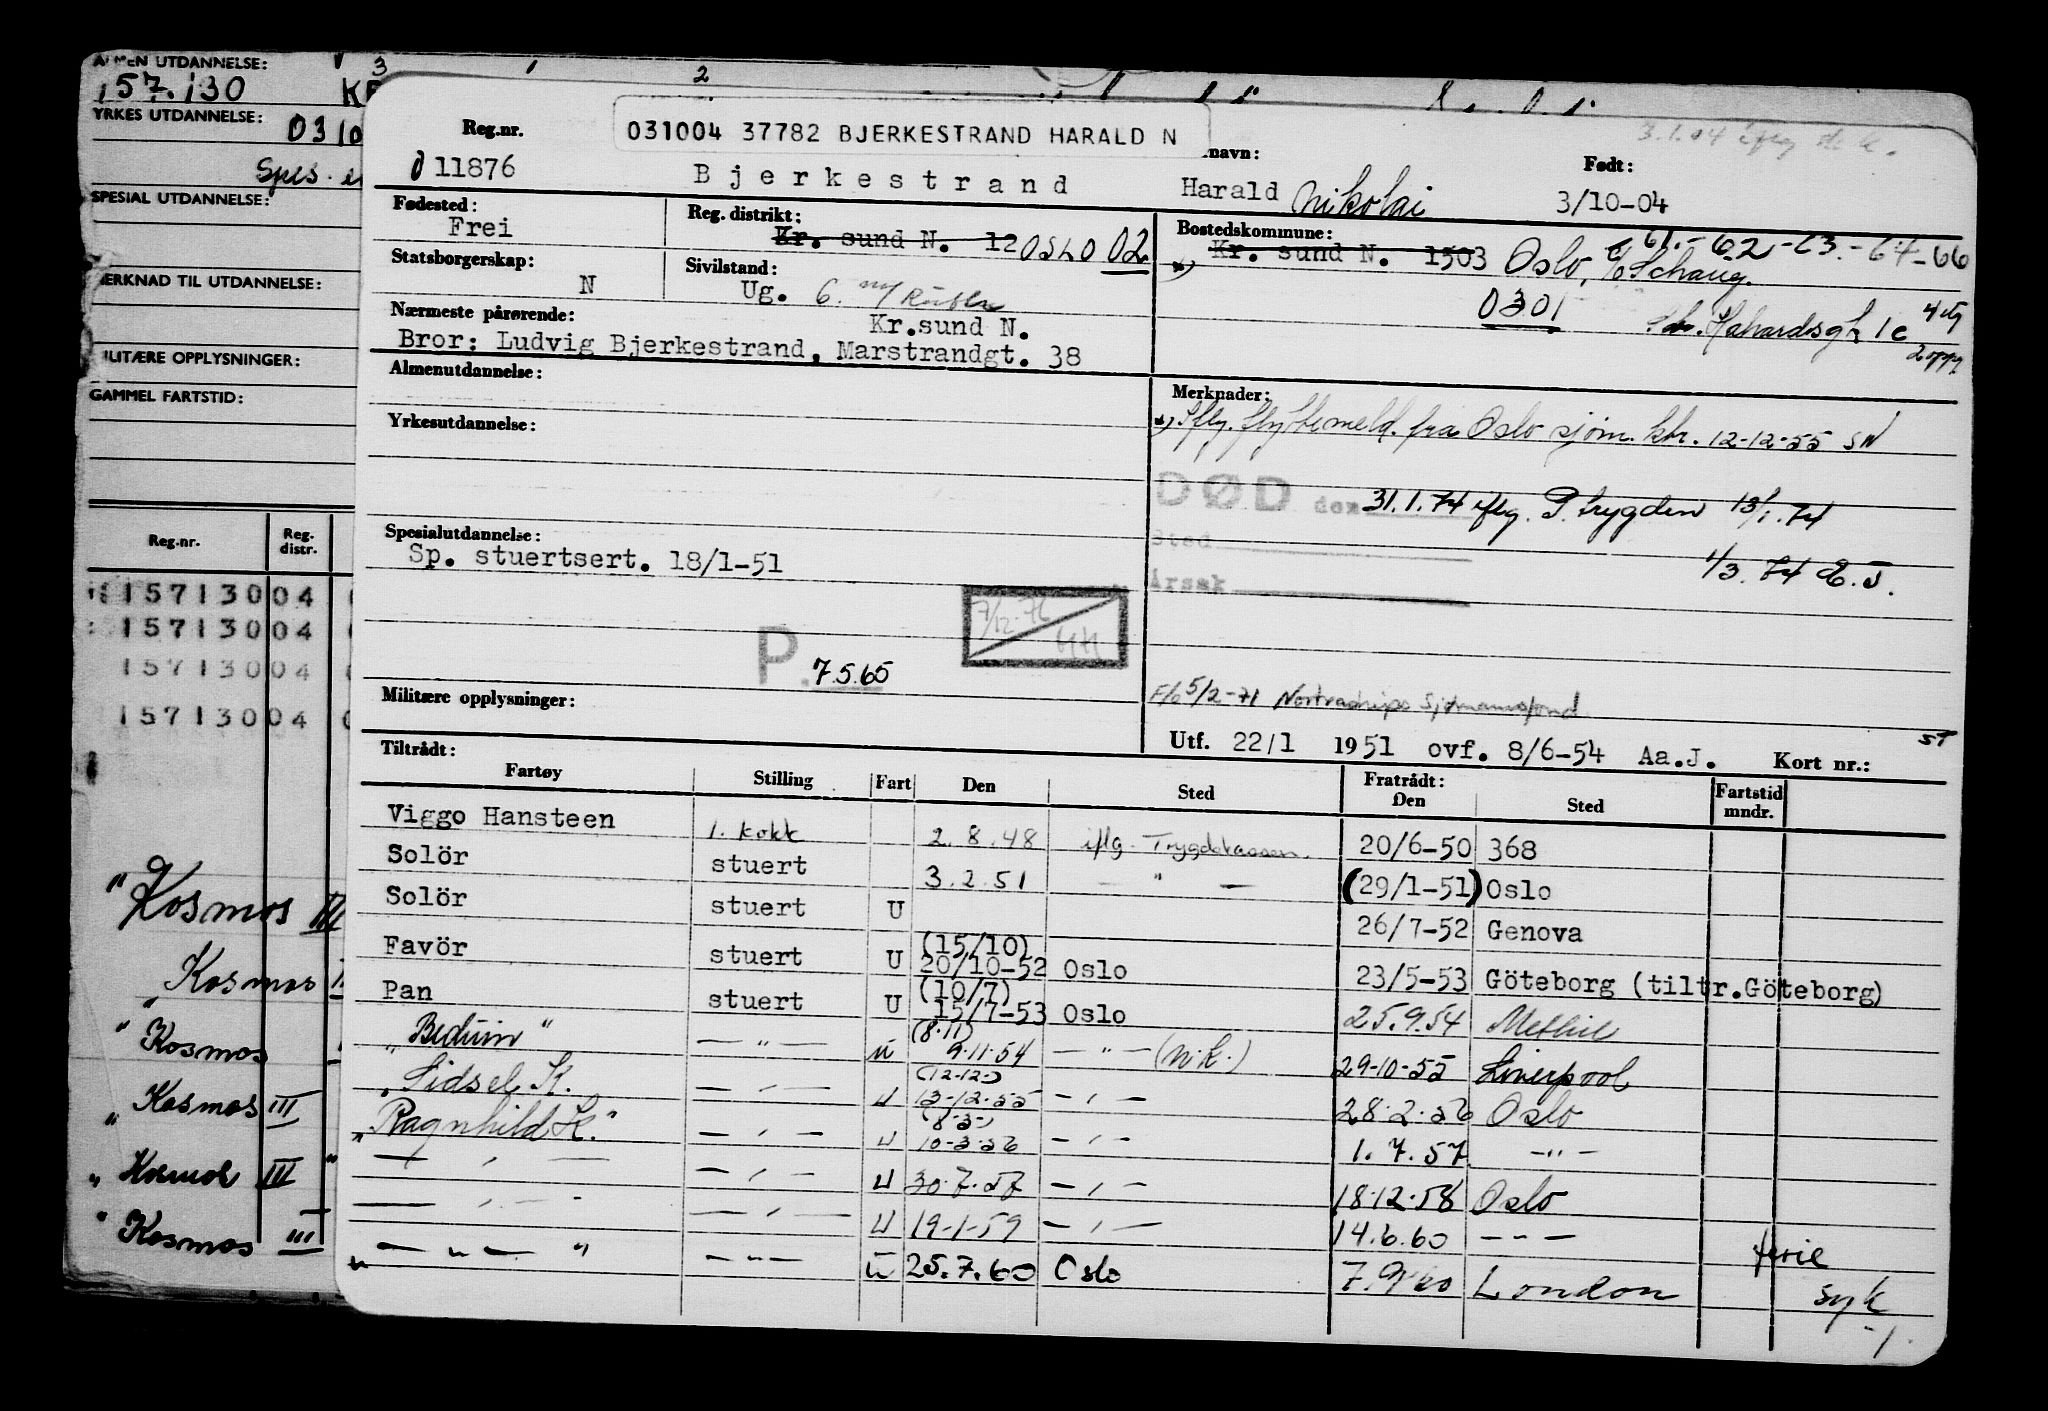 ALMEN UTDANNELSE:
157.130
YRKES UTDANNELSE:
SPESIAL UTDANNELSE:
MERKNAD TIL UTDANNELSE:
MILITÆRE OPPLYSNINGER:
GAMMEL FARTSTID:
Reg.nr. Reg. distr.
15713004
15713004
15713004
15713004
" Kosmos III
Kosmos
" Kosmos
" Kosmos III
" Kosmos III "
" Kosmos III
031004 37782 BJERKESTRAND HARALD N
Reg.nr. navn: Født:
011876 Bjerkestrand Harald Nikolai 3/10-04
Fødested: Reg. distrikt: Bostedskommune:
Frei Kr. sund N. 12 OSLO 02 Kr. sund N. 1503 Oslo, 61.-62-63.-64-66
0301
Statsborgerskap: Sivilstand:
N Ug. G.
Nærmeste pårørende: Kr.sund N.
Bror: Ludvig Bjerkestrand, Marstrandgt. 38
Almenutdannelse: Merknader:
iflg. flyttemeld. fra Oslo sjøm. ktr. 12-12-55 SN
Yrkesutdannelse:
DØD den 31.1.74 iflg. P. trygden
Sted
1/3.74
Årsak
Spesialutdannelse:
Sp. stuertsert. 18/1-51
7/12-76
P. 7.5.65
Militære opplysninger:
5/2-71 Nortraships Sjømannsfond
Utf. 22/1 1951 ovf. 8/6-54 Aa.J. Kort nr.:
Tiltrådt: Fratrådt:
Fartøy Stilling Fart Den Sted Den Sted Fartstid mndr.
Viggo Hansteen 1. kokk 2.8.48 iflg. Trygdekassen. 20/6-50 368
Solör stuert 3.2.51 — " — (29/1-51) Oslo
Solör stuert U 26/7-52 Genova
Favör stuert U (15/10) 20/10-52 Oslo 23/5-53 Göteborg (tiltr.Göteborg)
Pan stuert U (10/7) 15/7-53 Oslo 25.9.54 Methil
" Beduin " — " — u (8.11) 9.11.54 — " — (N.K.) 29-10-55 Liverpool
" Sidsel K. — " — u (12-12-) 13-12-55 — " — 28.2.56 Oslo
" Ragnhild K." — " — u (8-3-) 10-3-56 — " — 1.7.57 — " —
— " — — " — u 30.7.57 — " — 18.12.58 Oslo
— " — — " — u 19-1-59 — " — 14.6.60 — " — ferie
— " — " — " — u 25.7.60 Oslo 7.9.60 London syk